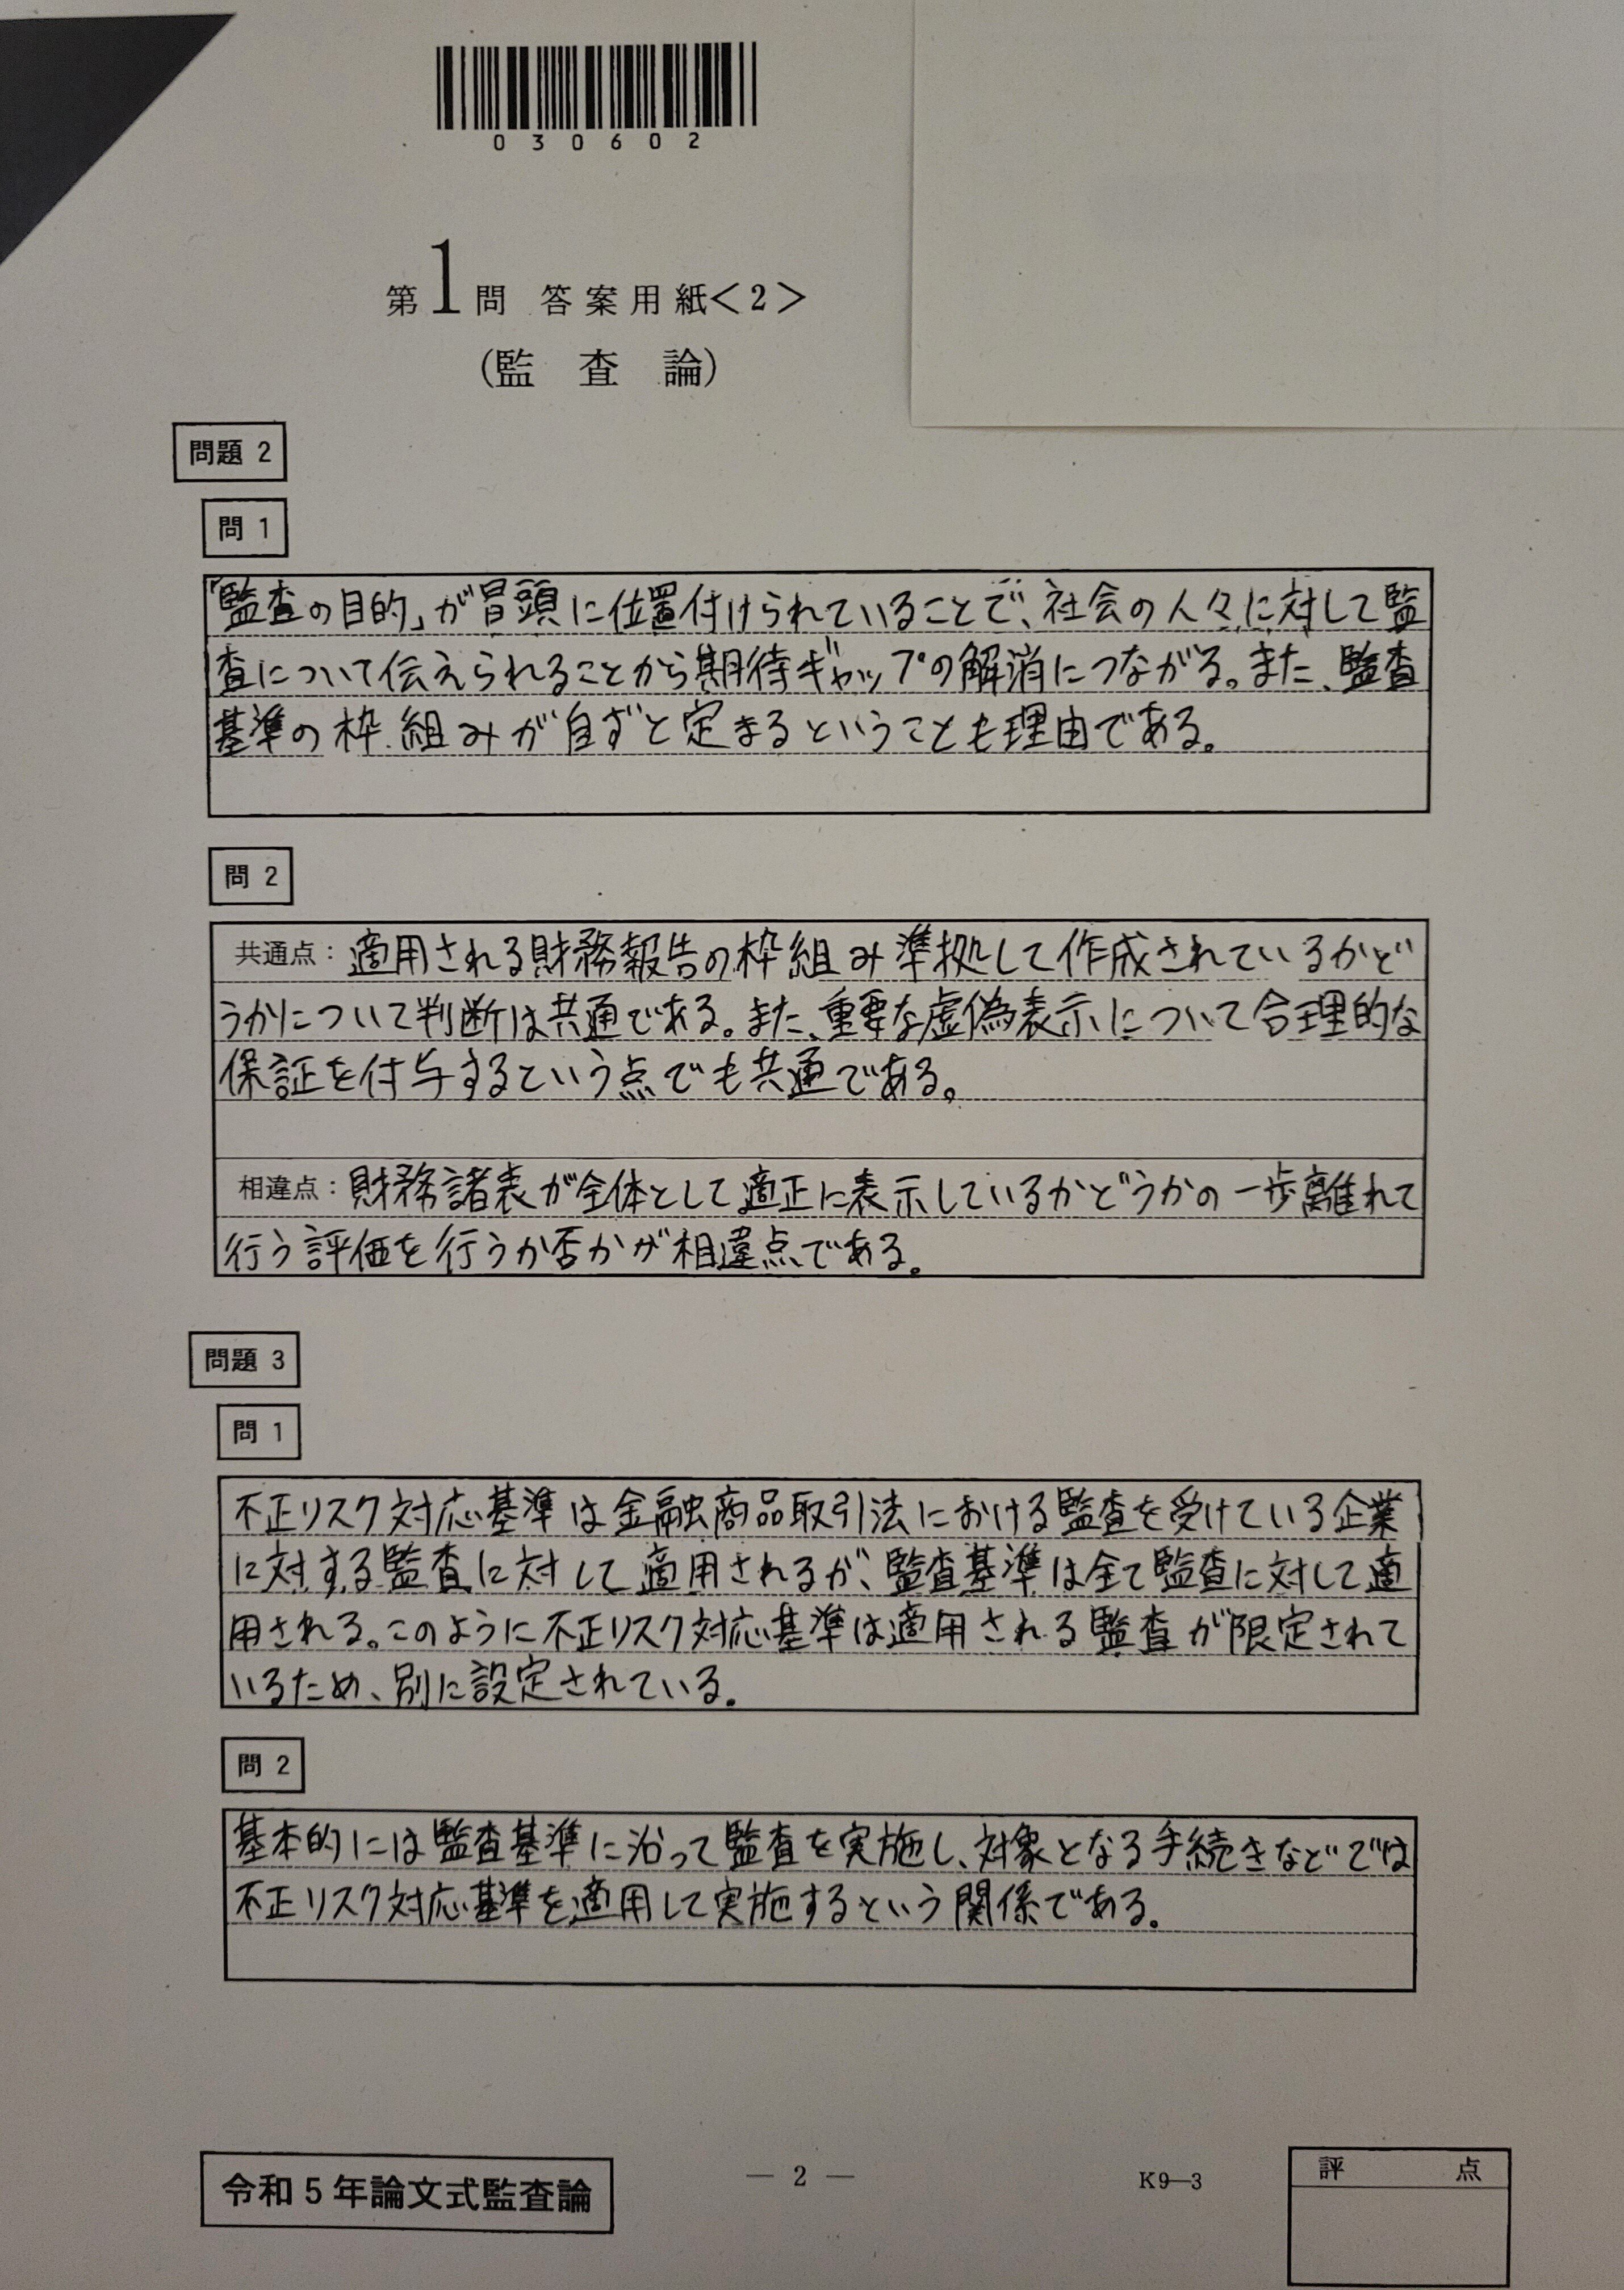 030602
第1問 答案用紙<2>
(監査論)
問題 2
問 1
「監査の目的」が冒頭に位置付けられていることで、社会の人々に対して監
査について伝えられることから期待ギャップの解消につながる。また、監査
基準の枠組みが自ずと定まるということも理由である。
問 2
共通点:適用される財務報告の枠組み準拠して作成されているかど
うかについて判断は共通である。また、重要な虚偽表示について合理的な
保証を付与するという点でも共通である。
相違点:財務諸表が全体として適正に表示しているかどうかの一歩離れて
行う評価を行うか否かが相違点である。
問題 3
問 1
不正リスク対応基準は金融商品取引法における監査を受けている企業
に対する監査に対して適用されるが、監査基準は全て監査に対して適
用される。このように不正リスク対応基準は適用される監査が限定されて
いるため、別に設定されている。
問 2
基本的には監査基準に沿って監査を実施し、対象となる手続きなどでは
不正リスク対応基準を適用して実施するという関係である。
令和5年論文式監査論
― 2 ―
K9―3
評点